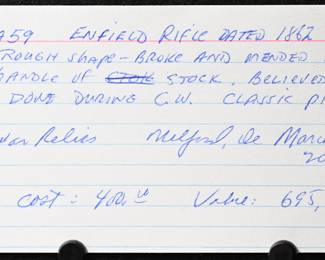 A59 ENFIELD RIFLE DATED 1862
ROUGH SHAPE - BROKE AND MENDED
HANDLE OF STOCK. BELIEVED
DONE DURING C.W. CLASSIC
War Relics Milford, De Marc
20
Cost: 400.00 Value: 695,